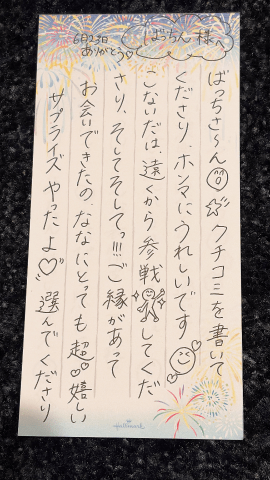 ばっちん様へ
6月23日
ありがとう♡
ばっちさ〜ん☺☆クチコミを書いて
くださり、ホンマにうれしいです
こないだは、遠くから参戦してくだ
さり、そしてそしてっ!!!ご縁があって
お会いできたの、ななにとっても超嬉しい
サプライズやったよ♡選んでくださり
Hallmark